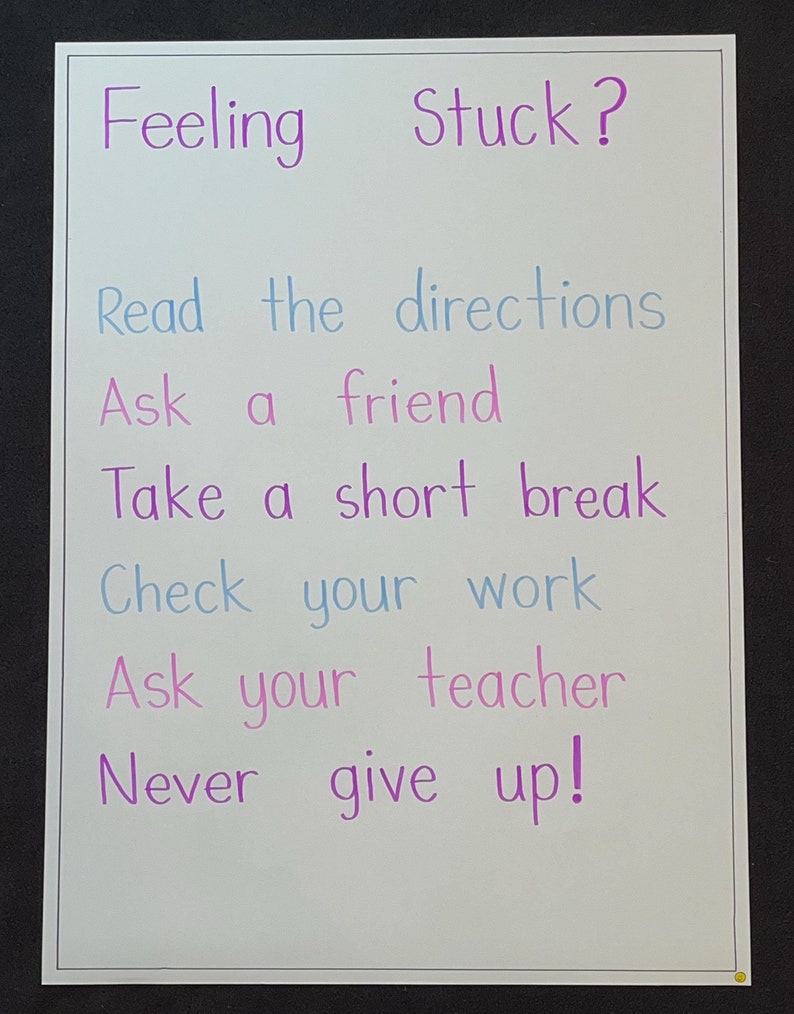 Feeling Stuck?
Read the directions
Ask a friend
Take a short break
Check your work
Ask your teacher
Never give up!